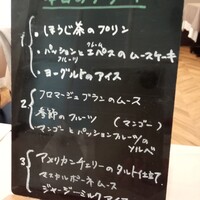 本日のデザート
1
・ほうじ茶のプリン
・パッションとエペスのムースケーキ
フルーツ
・ヨーグルトのアイス
2
フロマージュブランのムース
季節のフルーツ (マンゴー)
マンゴーとパッションフルーツの
ソルベ
3
アメリカンチェリーのタルト仕立て
マスカルポーネムース
ジャージーミルクアイス